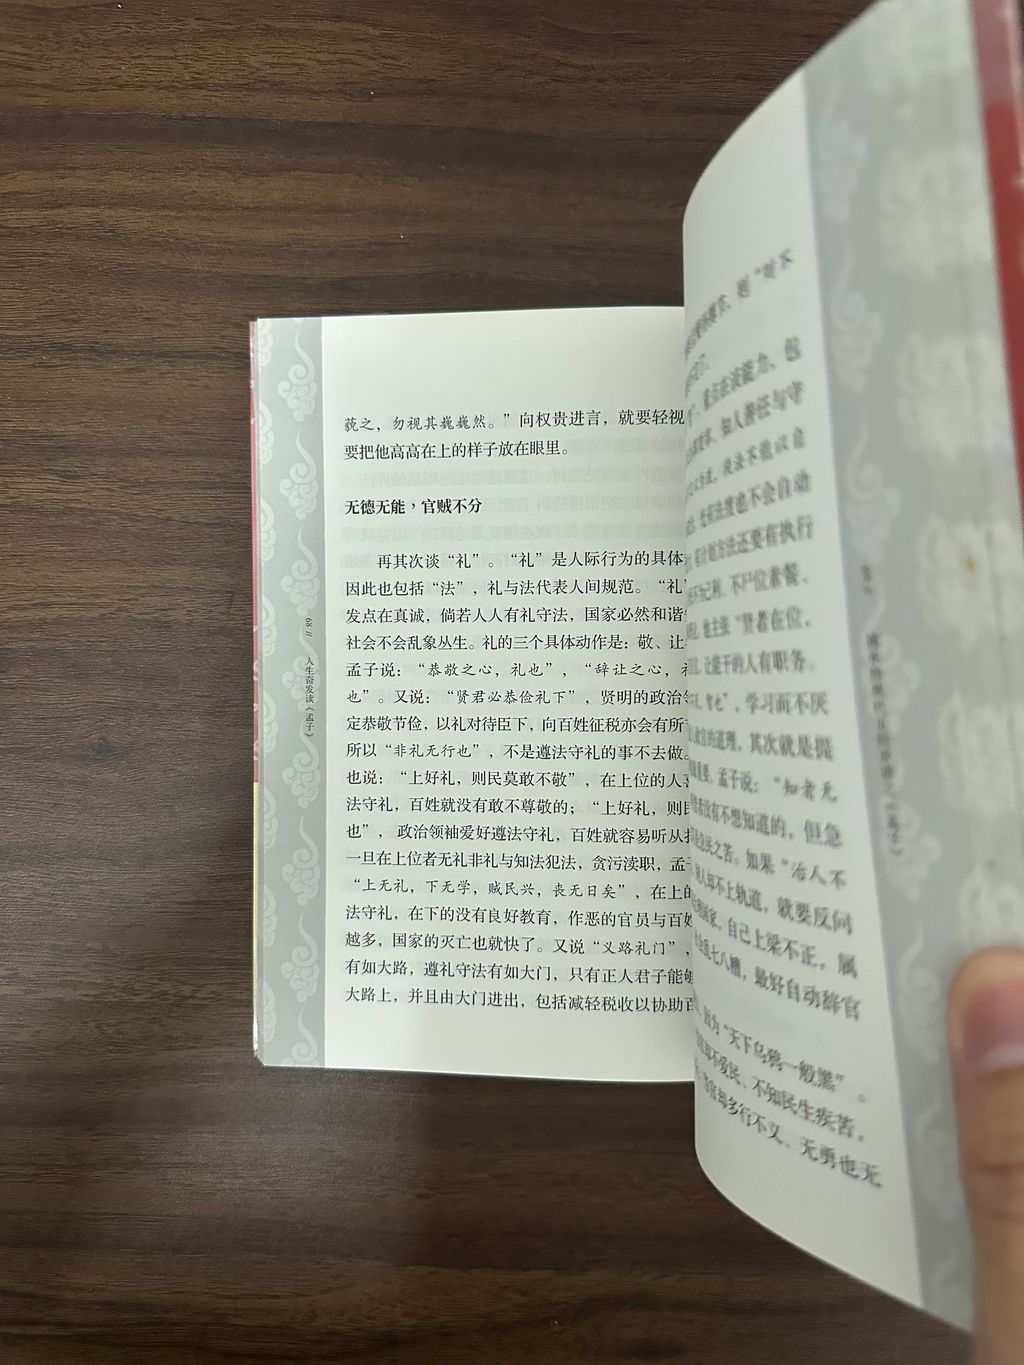 藐之，勿视其巍巍然。”向权贵进言，就要轻视
要把他高高在上的样子放在眼里。
无德无能，官贼不分
再其次谈“礼”。“礼”是人际行为的具体
因此也包括“法”，礼与法代表人间规范。“礼”
发点在真诚，倘若人人有礼守法，国家必然和谐
社会不会乱象丛生。礼的三个具体动作是：敬、让
孟子说：“恭敬之心，礼也”，“辞让之心，礼
也”。又说：“贤君必恭俭礼下”，贤明的政治领
定恭敬节俭，以礼对待臣下，向百姓征税亦会有所
所以“非礼无行也”，不是遵法守礼的事不去做。
也说：“上好礼，则民莫敢不敬”，在上位的人喜
法守礼，百姓就没有敢不尊敬的；“上好礼，则民
也”，政治领袖爱好遵法守礼，百姓就容易听从
一旦在上位者无礼非礼与知法犯法，贪污渎职，孟子
“上无礼，下无学，贼民兴，丧无日矣”，在上的
法守礼，在下的没有良好教育，作恶的官员与百姓
越多，国家的灭亡也就快了。又说“义路礼门”，
有如大路，遵礼守法有如大门，只有正人君子能够
大路上，并且由大门进出，包括减轻税收以协助百
68 // 人生奋发读《孟子》
则“吐不
重点在谈能力，包
知人善任与守
徒法不能以自
光有法度也不会自动
有计划方法还要有执行
不为己利，不尸位素餐、
他主张“贤者在位，
让能干的人有职务。
智也”，学习而不厌
政官的道理，其次就是提
重要。孟子说：“知者无
者没有不想知道的，但急
急民之苦。如果“治人不
人却不上轨道，就要反问
国家，自己上梁不正，属
七八糟，最好自动辞官
因为“天下乌鸦一般黑”。
却不爱民、不知民生疾苦，
当官却多行不义、无勇也无